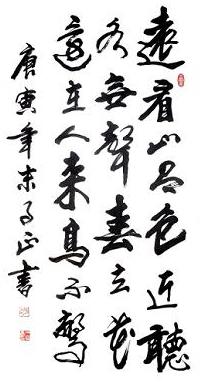 遠看山有色近聽
水無聲春去花
還在人來鳥不驚
庚寅年末正書